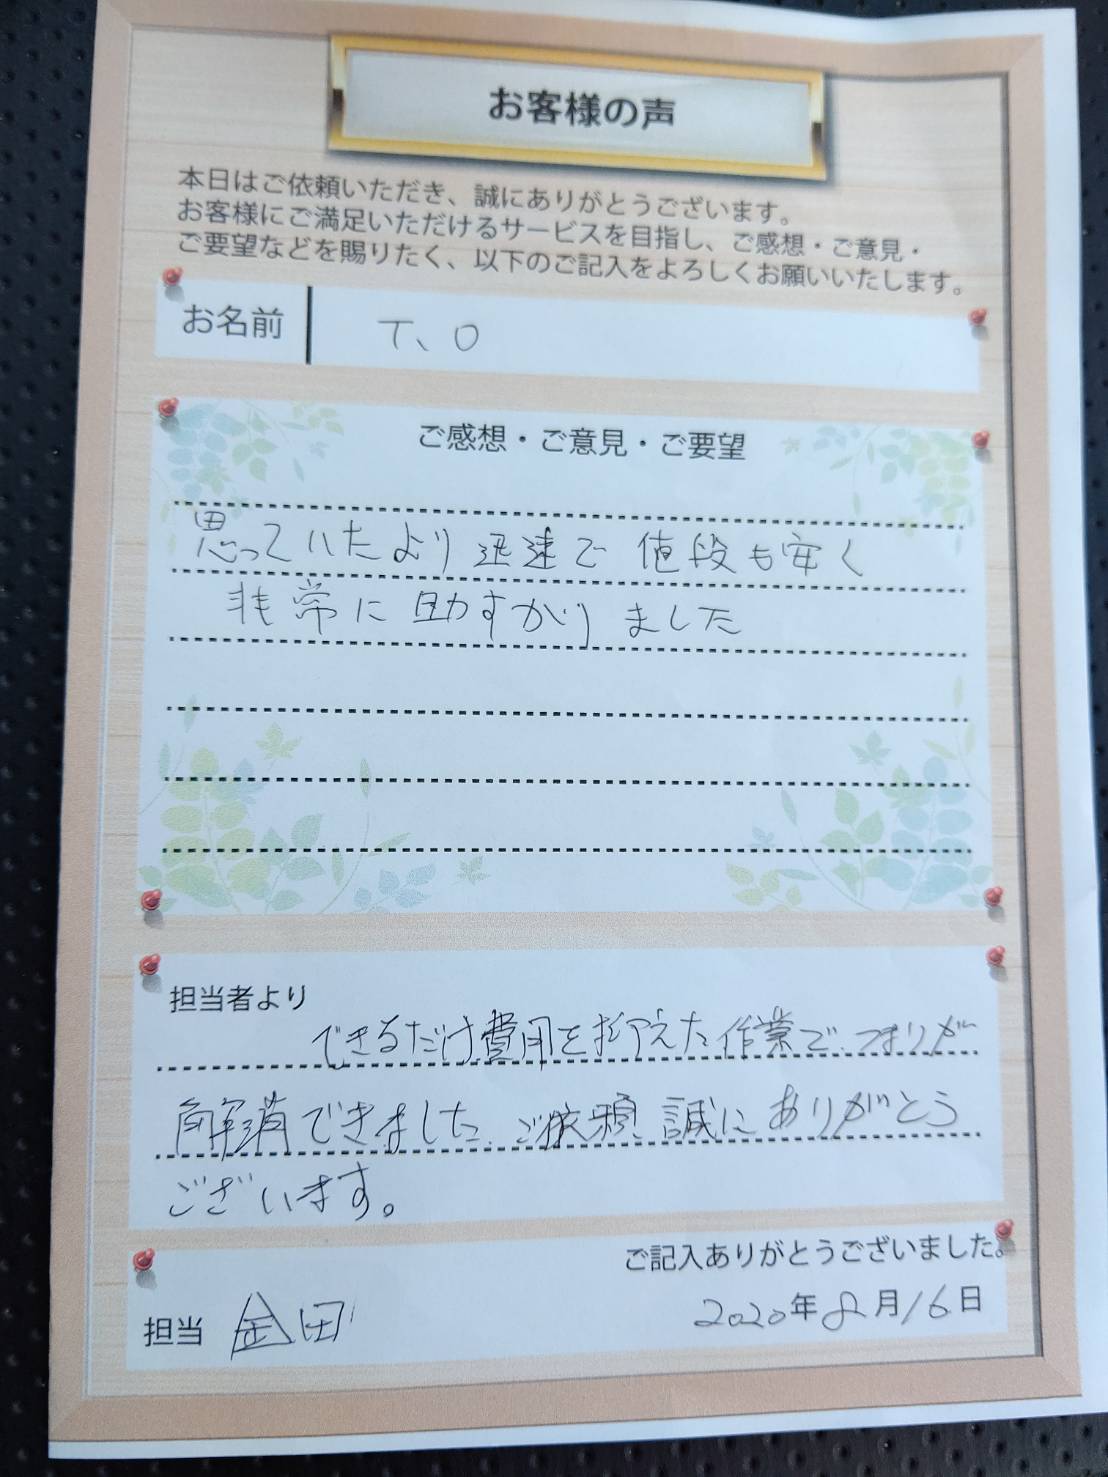 お客様の声
本日はご依頼いただき、誠にありがとうございます。
お客様にご満足いただけるサービスを目指し、ご感想・ご意見・
ご要望などを賜りたく、以下のご記入をよろしくお願いいたします。
お名前 T、O
ご感想・ご意見・ご要望
思っていたより迅速で 値段も安く
非常に助すかりました
担当者より
できるだけ費用を抑えた作業で、つまりが
解消できました。ご依頼 誠にありがとう
ございます。
ご記入ありがとうございました。
担当 金田 2020年8月16日